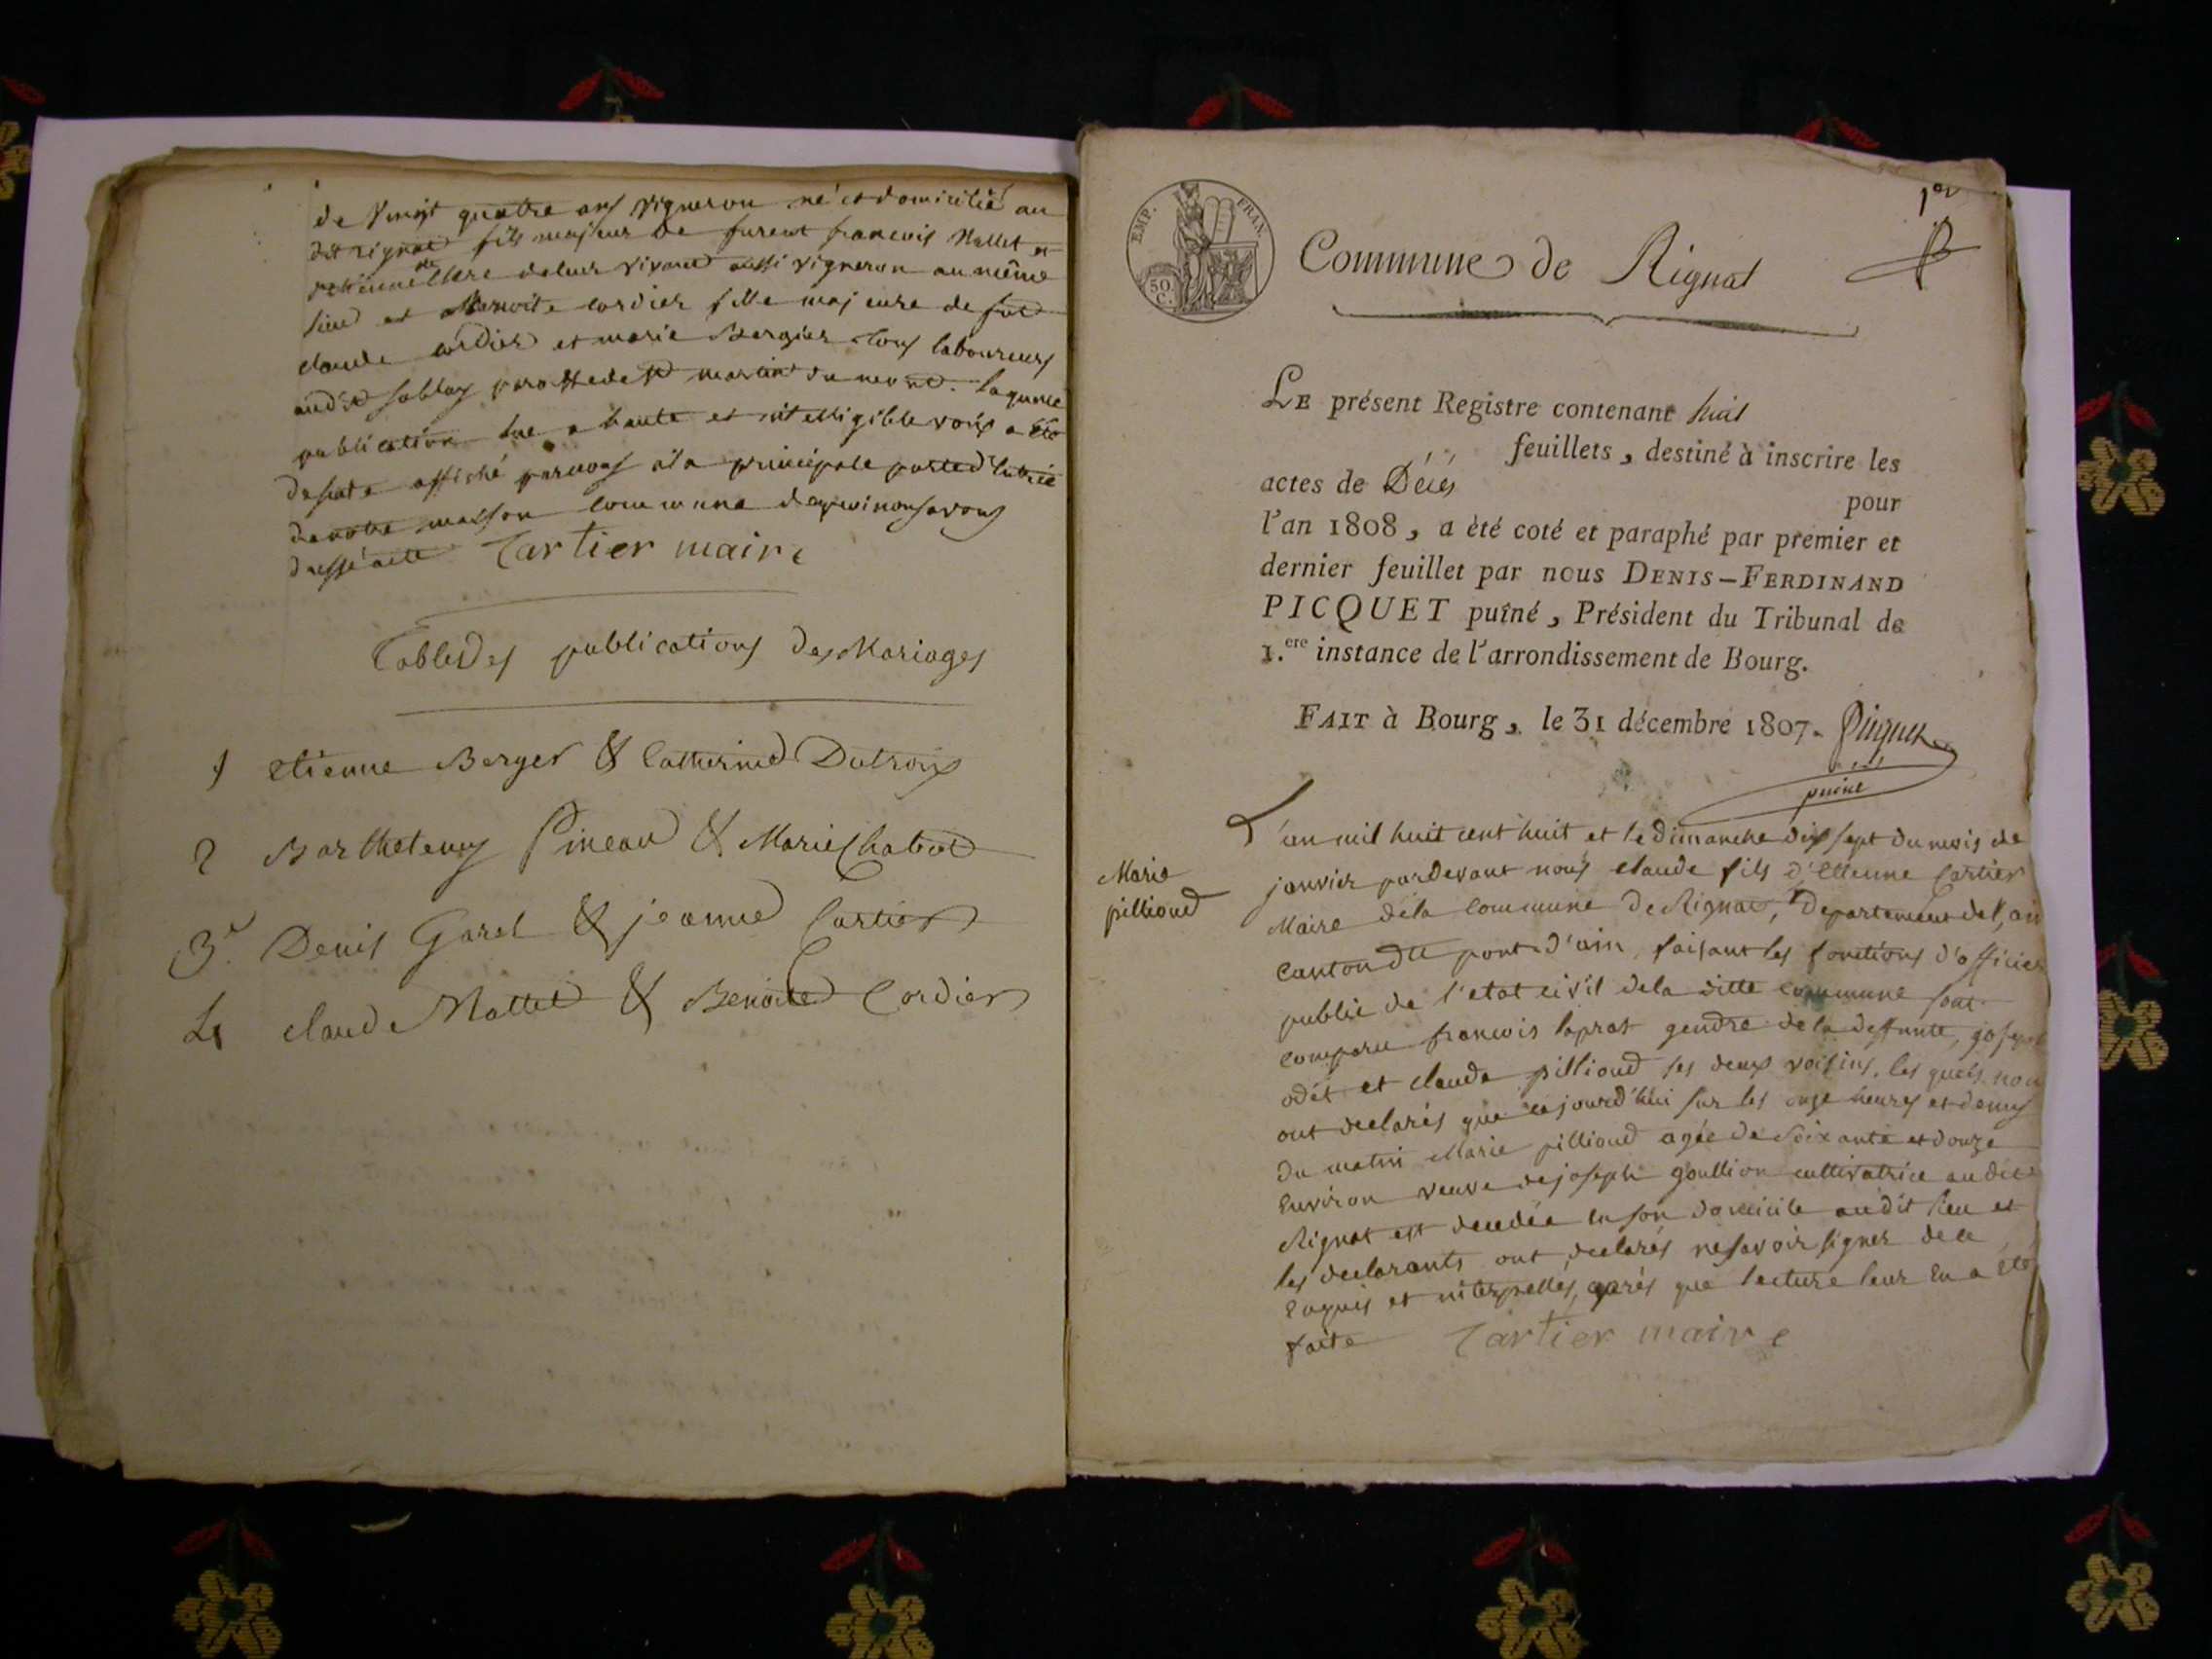 de Vingt quatre ans vigneron né et domicilié au
dit rignat fils majeur de furent francois Mallet et
etiennette de leur vivant aussi vigneron au même
lieu et Benoite cordier fille majeure de fut
claude cordier et marie Bergier tous laboureurs
audit martin du mont. laquelle
publication lue a haute et intelligible voix a été
de suite affiché par nous a la principale porte d'entrée
de notre maison commune de quoi nous avons
dressé acte Cartier maire
Table des publications des Mariages
1 etienne Berger & Catherine Dutroix
2 Barthelemy Pineau & Marie Chatrot
3. Denis Garel & jeanne Cartier
4 claude Mallet & Benoite Cordier
1er
EMP. FRAN.
50 C.
Commune de Rignat
LE présent Registre contenant huit
feuillets, destiné à inscrire les
actes de Décés pour
l'an 1808, a été coté et paraphé par premier et
dernier feuillet par nous DENIS-FERDINAND
PICQUET puîné, Président du Tribunal de
1.ere instance de l'arrondissement de Bourg.
FAIT à Bourg, le 31 décembre 1807. Picquet
puiné
Marie
pillioud
L'an mil huit cent huit et le dimanche dix sept du mois de
janvier pardevant nous claude fils d'Etienne Cartier
Maire de la commune de Rignat, Departement de l'ain
canton du pont d'ain, faisant les fonctions d'officier
public de l'etat civil de la ditte commune sont
comparu francois laprat gendre de la deffunte, joseph
odet et claude pillioud ses deux voisins. les quels nou
ont declarés que cejourd'hui sur les onze heures et demy
du matin Marie pillioud agée de Soixante et douze
Environ veuve de joseph goullion cultivatrice au dit
Rignat est decedée en son domicile audit lieu et
les declarants ont declarés ne savoir signer de ce
Enquis et interpellés, après que lecture leur En a été
faite Cartier maire